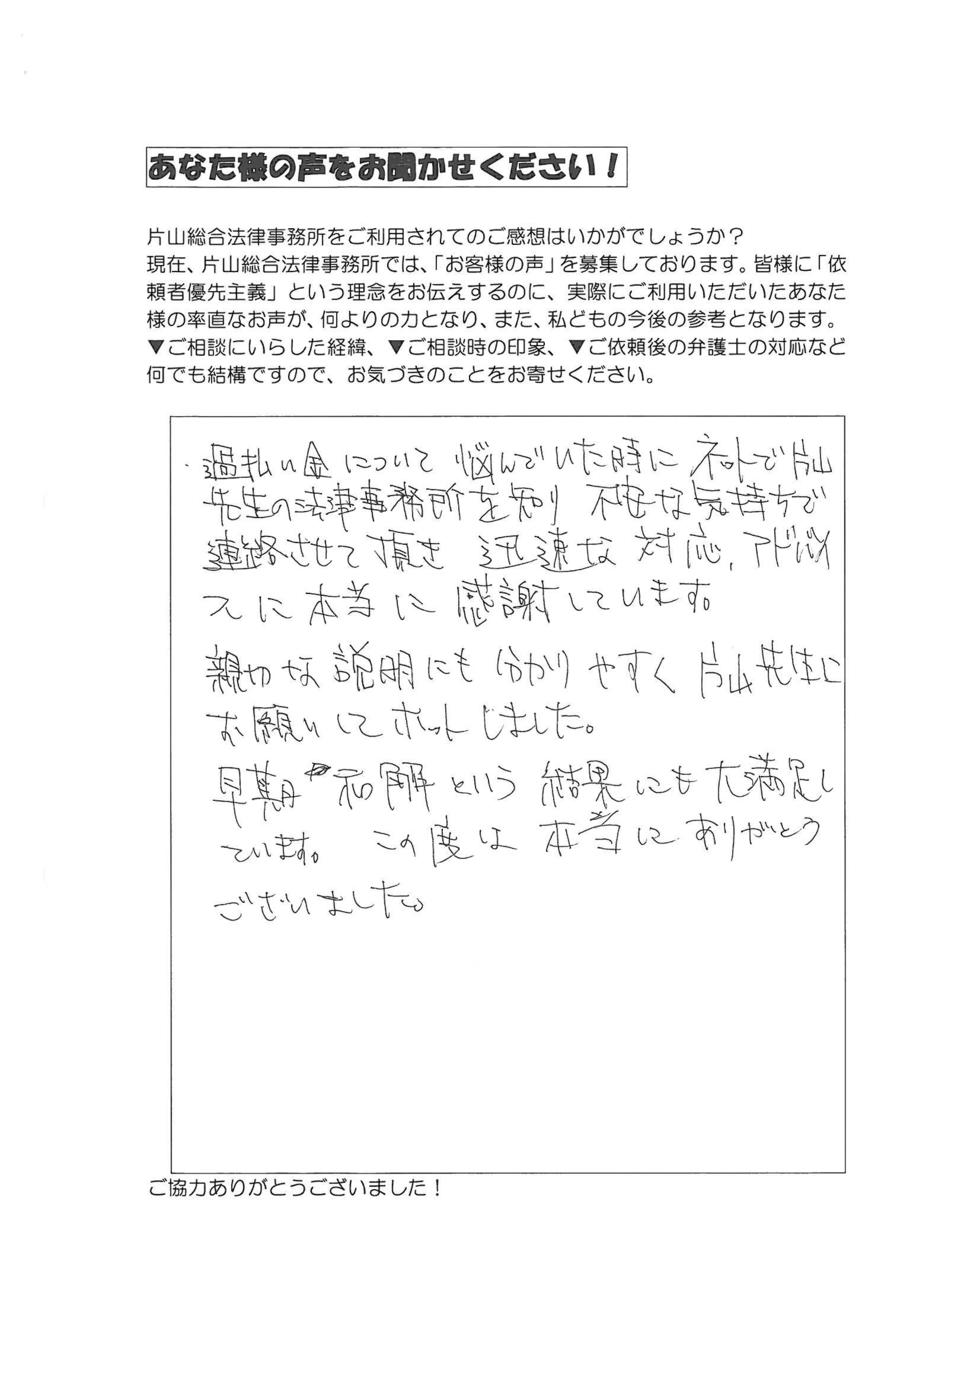 あなた様の声をお聞かせください！
片山総合法律事務所をご利用されてのご感想はいかがでしょうか？
現在、片山総合法律事務所では、「お客様の声」を募集しております。皆様に「依
頼者優先主義」という理念をお伝えするのに、実際にご利用いただいたあなた
様の率直なお声が、何よりの力となり、また、私どもの今後の参考となります。
▼ご相談にいらした経緯、▼ご相談時の印象、▼ご依頼後の弁護士の対応など
何でも結構ですので、お気づきのことをお寄せください。
・過払い金について 悩んでいた時に ネットで片山
先生の法律事務所を知り 不安な気持ちで
連絡させて頂き 迅速な 対応、アドバイ
スに本当に感謝しています。
親切な説明にも 分かりやすく 片山先生に
お願いしてホットしました。
早期 和解という 結果にも大満足し
ています。 この度は 本当にありがとう
ございました。
ご協力ありがとうございました！